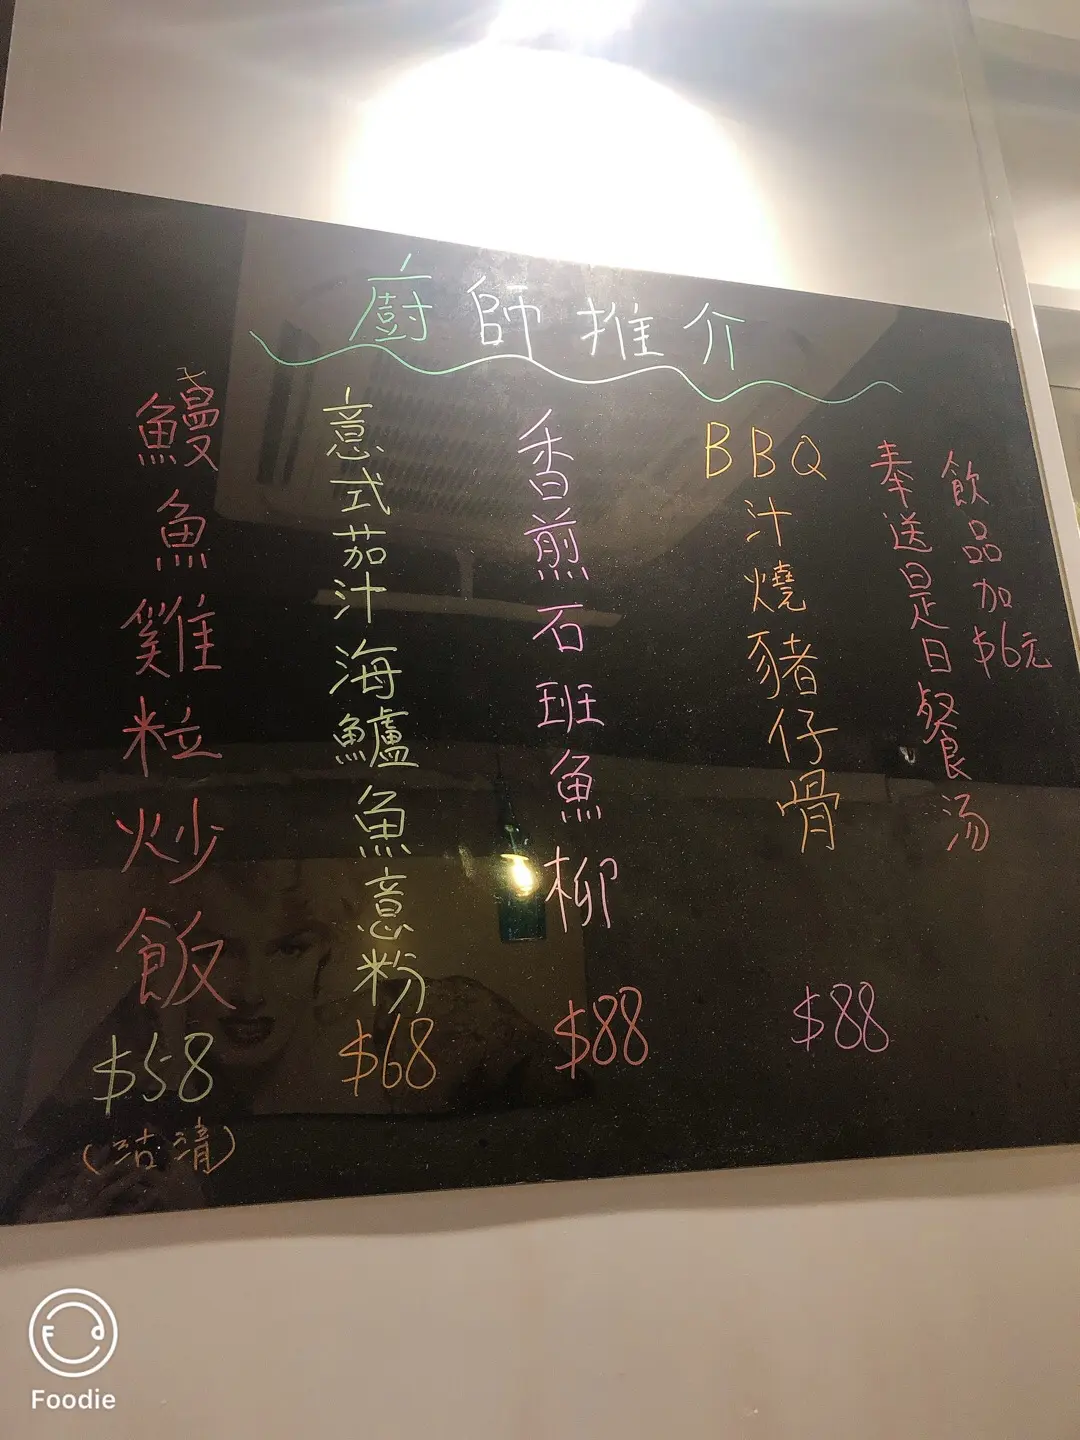 廚師推介
鰻魚雞粒炒飯
$58
(沽清)
意式茄汁海鱸魚意粉
$68
香煎石班魚柳
$88
BBQ汁燒豬仔骨
$88
奉送是日餐汤
飲品加$6元
Foodie